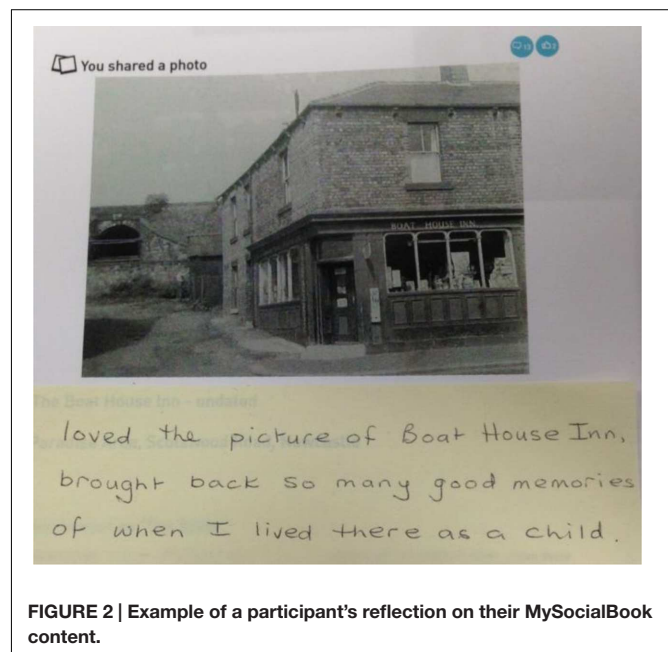 You shared a photo
BOAT HOUSE INN
The Boat House Inn - undated
loved the picture of Boat House Inn,
brought back so many good memories
of when I lived there as a child.
FIGURE 2 | Example of a participant's reflection on their MySocialBook
content.